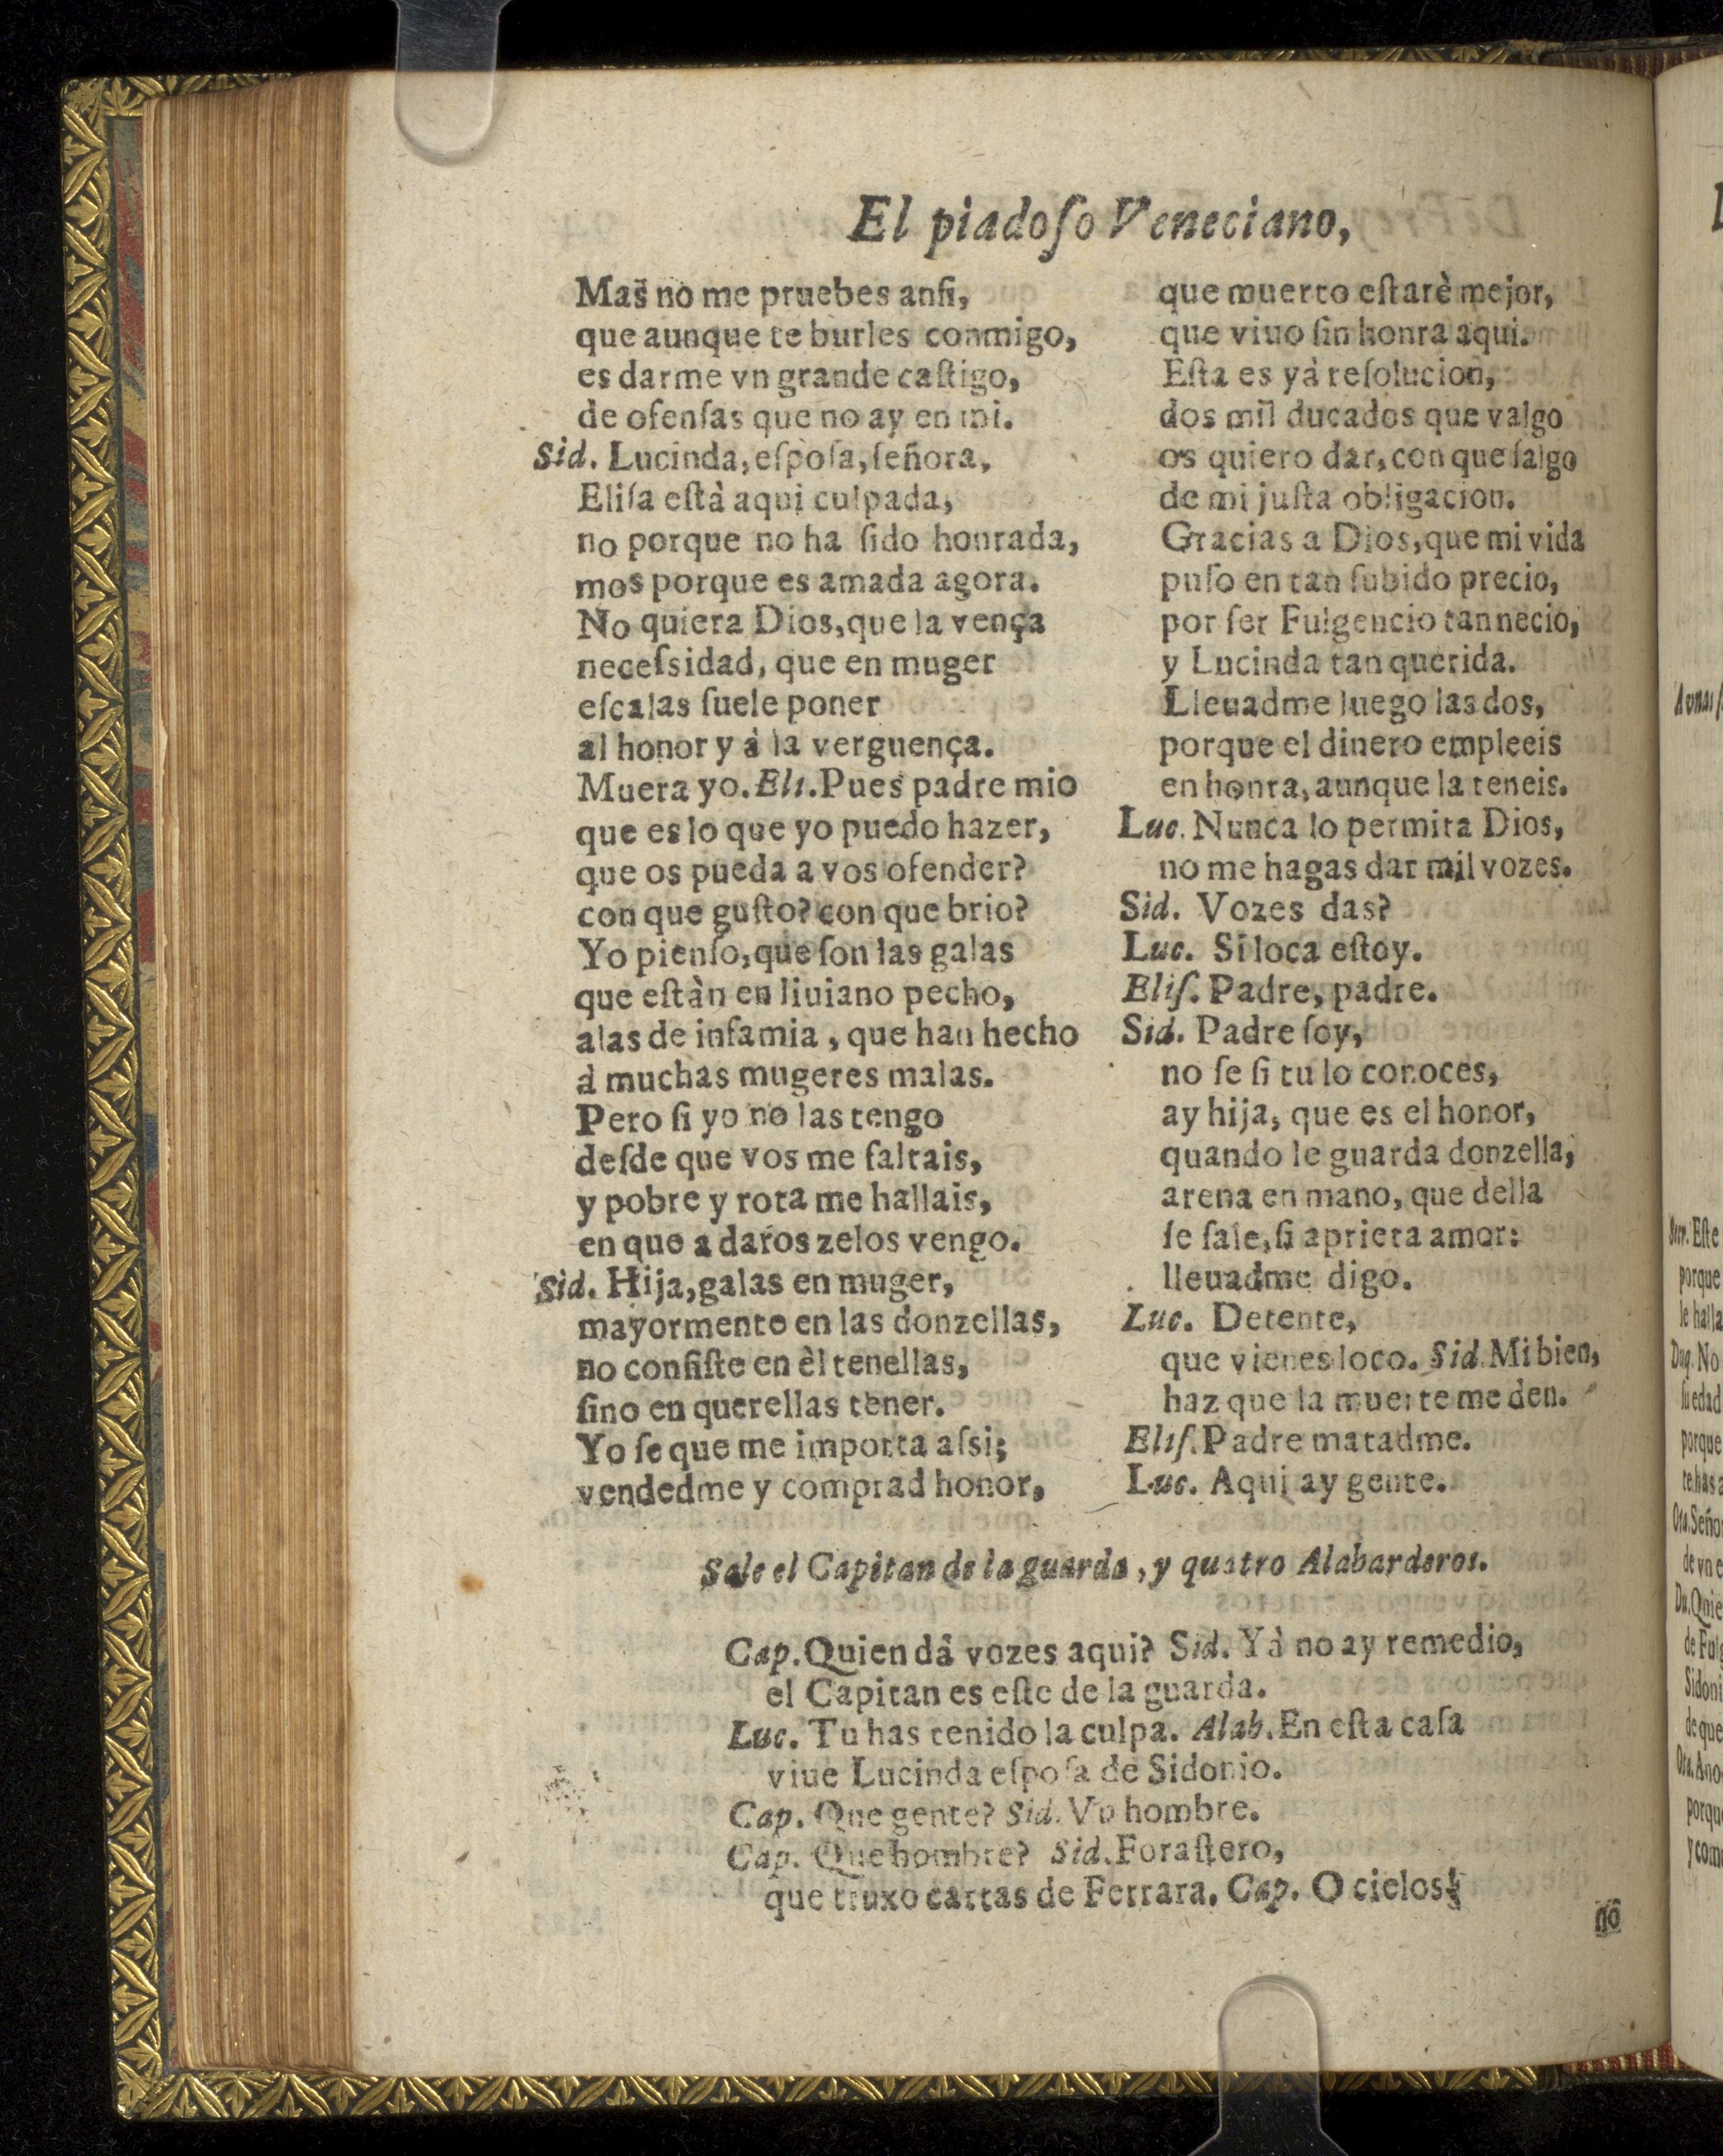 El piadoſo Veneciano,
Mas no me pruebes anſi,
que aunque te burles conmigo,
es darme vn grande caſtigo,
de ofenſas que no ay en mi.
Sid. Lucinda, eſpoſa, ſeñora,
Eliſa eſtà aqui culpada,
no porque no ha ſido honrada,
mos porque es amada agora.
No quiera Dios, que la vença
neceſsidad, que en muger
eſcalas ſuele poner
al honor y à la verguença.
Muera yo. Eli. Pues padre mio
que es lo que yo puedo hazer,
que os pueda a vos ofender?
con que guſto? con que brio?
Yo pienſo, que ſon las galas
que eſtàn en liuiano pecho,
alas de infamia, que han hecho
à muchas mugeres malas.
Pero ſi yo no las tengo
deſde que vos me faltais,
y pobre y rota me hallais,
en que a daros zelos vengo.
Sid. Hija, galas en muger,
mayormente en las donzellas,
no conſiſte en èl tenellas,
ſino en querellas tener.
Yo ſe que me importa aſsi;
vendedme y comprad honor,
que muerto eſtarè mejor,
que viuo ſin honra aqui.
Eſta es yà reſolucion,
dos mil ducados que valgo
os quiero dar, con que ſalgo
de mi juſta obligacion.
Gracias a Dios, que mi vida
puſo en tan ſubido precio,
por ſer Fulgencio tan necio,
y Lucinda tan querida.
Lleuadme luego las dos,
porque el dinero empleeis
en honra, aunque la teneis.
Luc. Nunca lo permita Dios,
no me hagas dar mil vozes.
Sid. Vozes das?
Luc. Si loca eſtoy.
Eliſ. Padre, padre.
Sid. Padre ſoy,
no ſe ſi tu lo conoces,
ay hija, que es el honor,
quando le guarda donzella,
arena en mano, que della
ſe ſale, ſi aprieta amor:
lleuadme digo.
Luc. Detente,
que vienes loco. Sid. Mi bien,
haz que la muerte me den.
Eliſ. Padre matadme.
Luc. Aqui ay gente.
Sale el Capitan de la guarda, y quatro Alabarderos.
Cap. Quien dà vozes aqui? Sid. Yà no ay remedio,
el Capitan es eſte de la guarda.
Luc. Tu has tenido la culpa. Alab. En eſta caſa
viue Lucinda eſpoſa de Sidonio.
Cap. Que gente? Sid. Vn hombre.
Cap. Que hombre? Sid. Foraſtero,
que truxo cartas de Ferrara. Cap. O cielos!
no
Sen. Eſte
porque
le halla
Duq. No
ſu edad
porque
te has a
Ota. Seño
de vn e
Du. Quie
de Fulg
Sidoni
de que
Ota. A no
porqu
y com